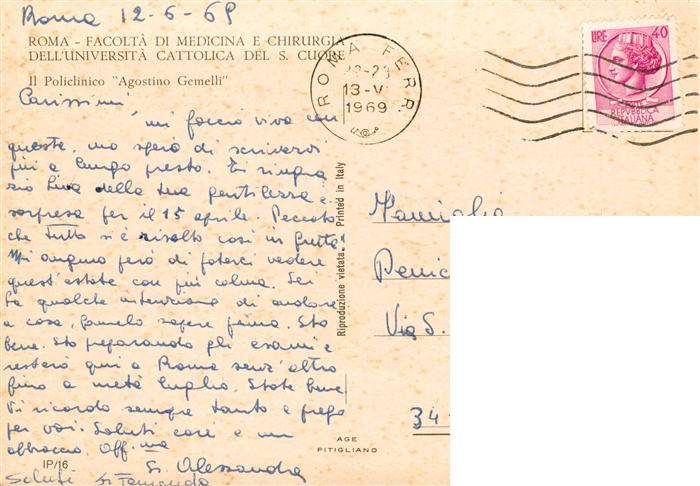 Roma 12-6-69
ROMA - FACOLTÀ DI MEDICINA E CHIRURGIA
DELL'UNIVERSITÀ CATTOLICA DEL S. CUORE
Il Policlinico "Agostino Gemelli"
Carissimi
mi faccio viva con
queste, ma spero di scrivervi
più a lungo presto. Ti ringra
zio Lina della tua gentilezza e
sorpresa per il 15 aprile. Peccato
che tutto si è risolto così in fretta!
Mi auguro però di poterci vedere
quest'estate con più calma. Se
fa qualche intenzione di andare
a casa, famelo sapere prima. Sto
bene. Sto preparando gli esami e
resterò qui a Roma senz'altro
fino a metà luglio. State bene
Vi ricordo sempre tanto e prego
per voi. Saluti cari e un
abbraccio. Aff.ma
Sr. Alessandra
Saluti Sr Fernanda
IP/16
Riproduzione vietata. Printed in Italy
AGE
PITIGLIANO
ROMA FERR.
22-23
13-VI
1969
LIRE 40
REPUBBLICA
ITALIANA
Famiglia
Penic
Via S.
34